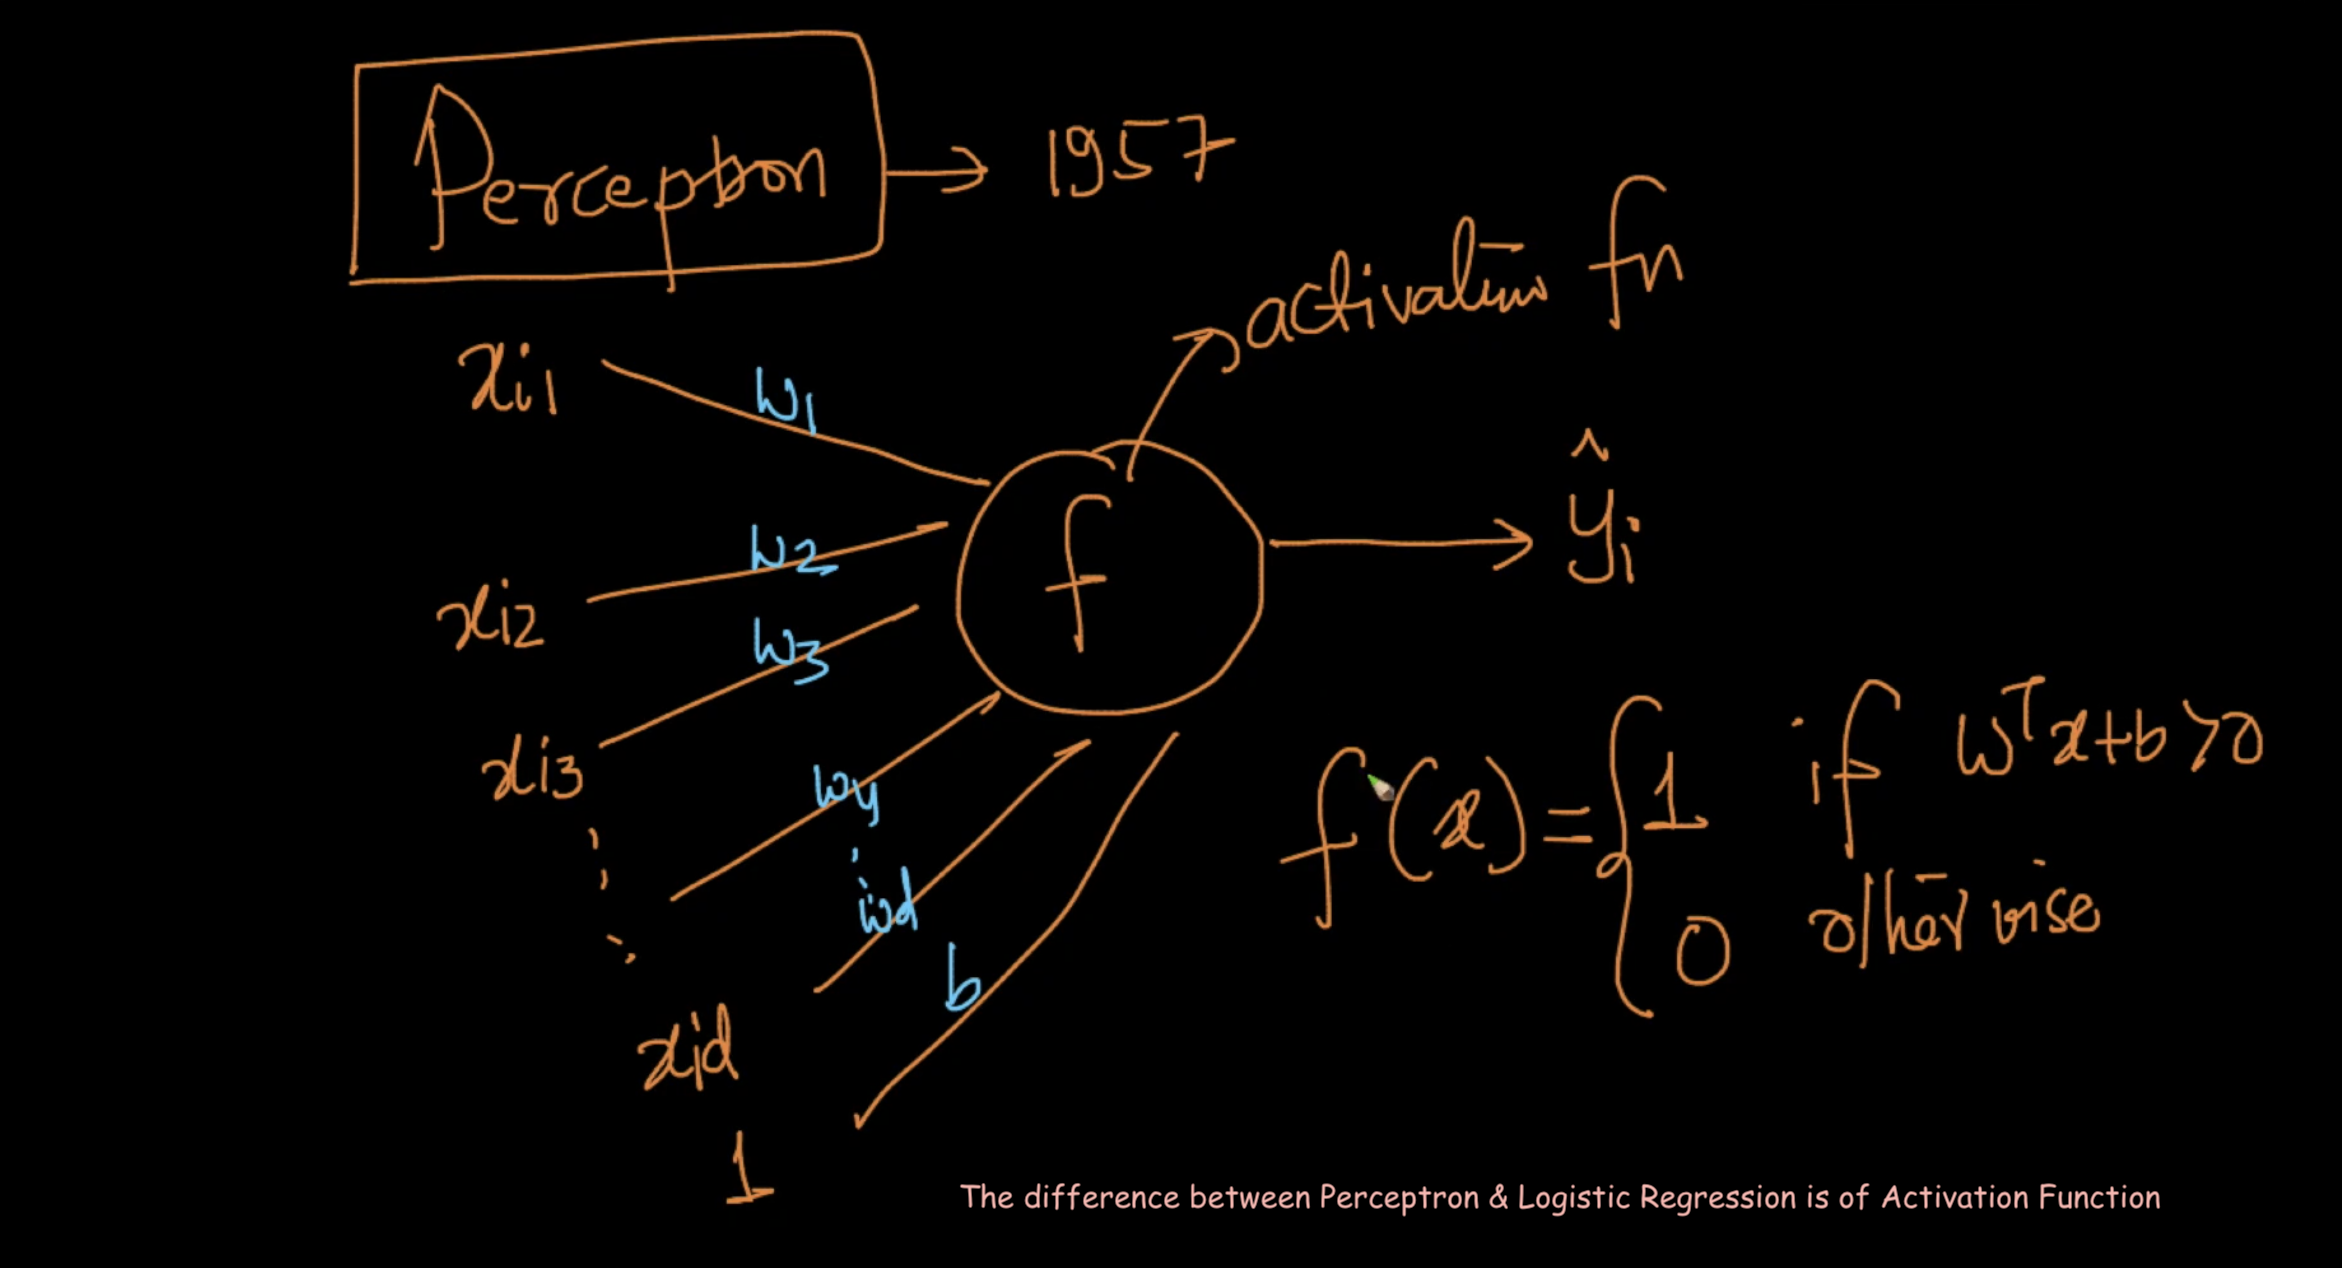 Perceptron → 1957
activation fn
xi1 w1
f
ŷi
w2
xi2
w3
xi3
w4
wd
b
xid
1
f(x) = { 1 if wᵀx+b>0
0 otherwise
The difference between Perceptron & Logistic Regression is of Activation Function